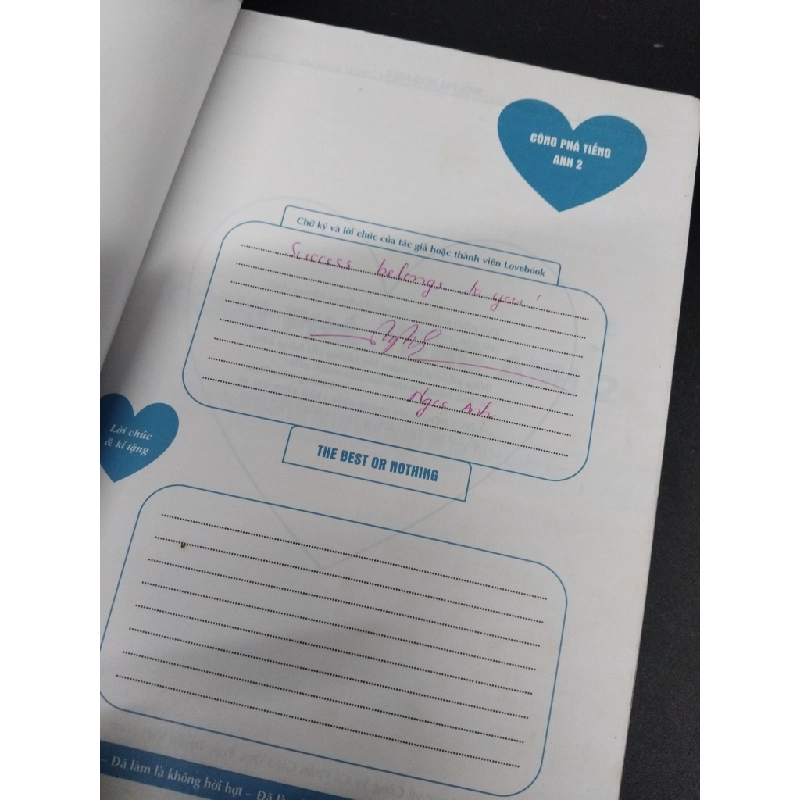 CÔNG PHÁ TIẾNG
ANH 2
Chữ ký và lời chúc của tác giả hoặc thành viên Lovebook
Success belongs to you!
Ngọc Anh
THE BEST OR NOTHING
Lời chúc
& kí tặng
– Đã làm là không hời hợt – Đã là